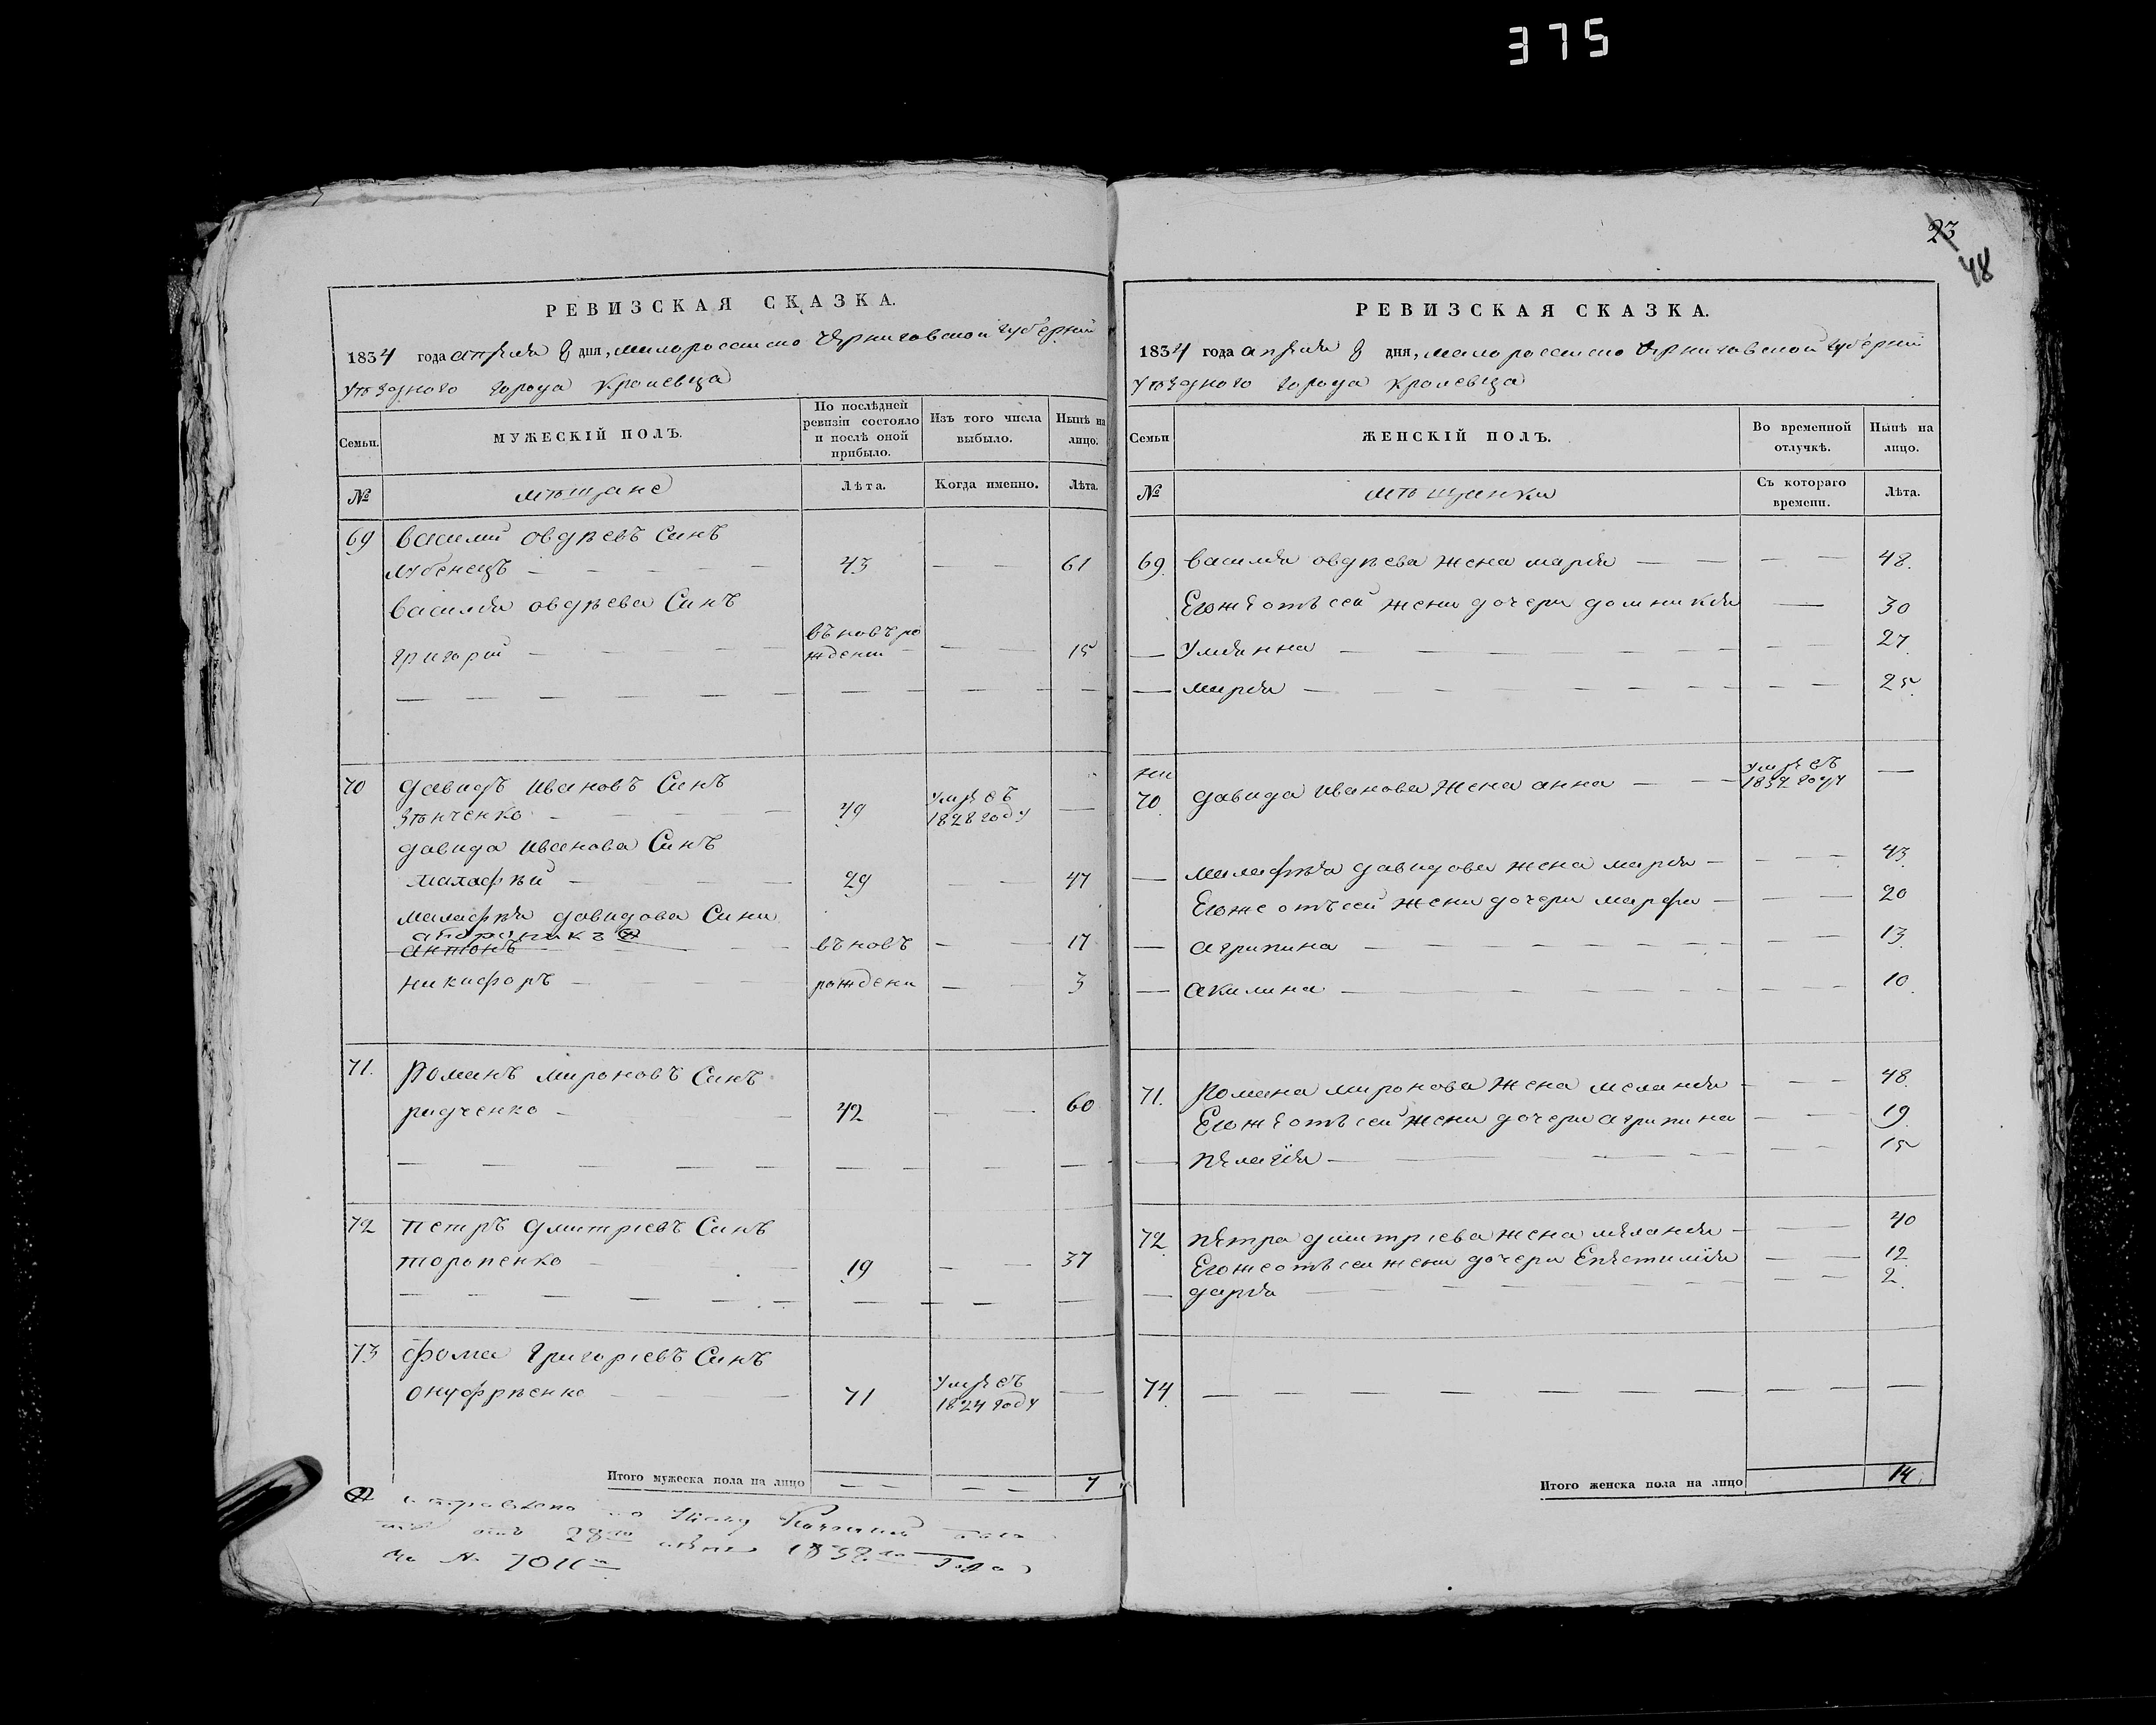 375
РЕВИЗСКАЯ СКАЗКА.
1834 года апреля 8 дня, малороссиско Черниговской губернии
уѣздного города Кролевца
Семьи. МУЖЕСКІЙ ПОЛЪ. По послѣдней ревизіи состояло и послѣ оной прибыло. Изъ того числа выбыло. Нынѣ на лицо.
№ мѣщане Лѣта. Когда именно. Лѣта.
69 василий овдѣевъ Синъ
лубенецъ — 43 — — 61
василия овдѣева Синъ
григорий — въновъ рождений — — 15
70 давидъ ивановъ Синъ
зѣнченко — 49 умре въ 1828 году —
давида иванова Синъ
малафѣй — 29 — — 47
малафѣя давидова Сини
антонъ — въновъ — — 17
никифоръ — рождени — — 3
71. Романъ мироновъ Синъ
радченко — 42 — — 60
72 петръ дмитріевъ Синъ
торопенко — 19 — — 37
73 фома григоріевъ Синъ
онуфрѣенко — 71 умре въ 1824 году —
Итого мужеска пола на лицо — — — — 7
28го 1838го года
за № 7011
23
48
РЕВИЗСКАЯ СКАЗКА.
1834 года апреля 8 дня, малороссиско Черниговской губернии
уѣздного города Кролевца
Семьи ЖЕНСКІЙ ПОЛЪ. Во временной отлучкѣ. Нынѣ на лицо.
№ мѣщанки Съ котораго времени. Лѣта.
69. василия овдѣева жена мария — — — — 48.
Его же отъ сей жени дочери домникия — 30
— Улиянна — — — 27.
— мария — — — 25.
70. давида иванова жена анна — умре въ 1832 году —
— малафѣя давидова жена мария — — — 43.
Его же отъ сей жени дочери марфа — — — 20
— агрипина — — — 13.
— акилина — — — 10.
71. Романа миронова жена мелания — — — 48.
Его же отъ сей жени дочери агрипина — — 19.
— пелагия — — — 15
72. петра дмитріева жена мелания — — — 40
Его же отъ сей жени дочери Епистимия — — 12.
— дария — — — 2.
74. — — — — — — — — — —
Итого женска пола на лицо 14.